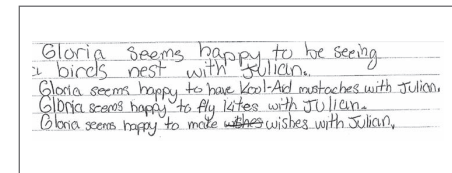 Gloria seems happy to be seeing
a birds nest with Julian.
Gloria seems happy to have Kool-Aid mustaches with Julian.
Gloria seems happy to fly kites with Julian.
Gloria seems happy to make wishes with Julian.